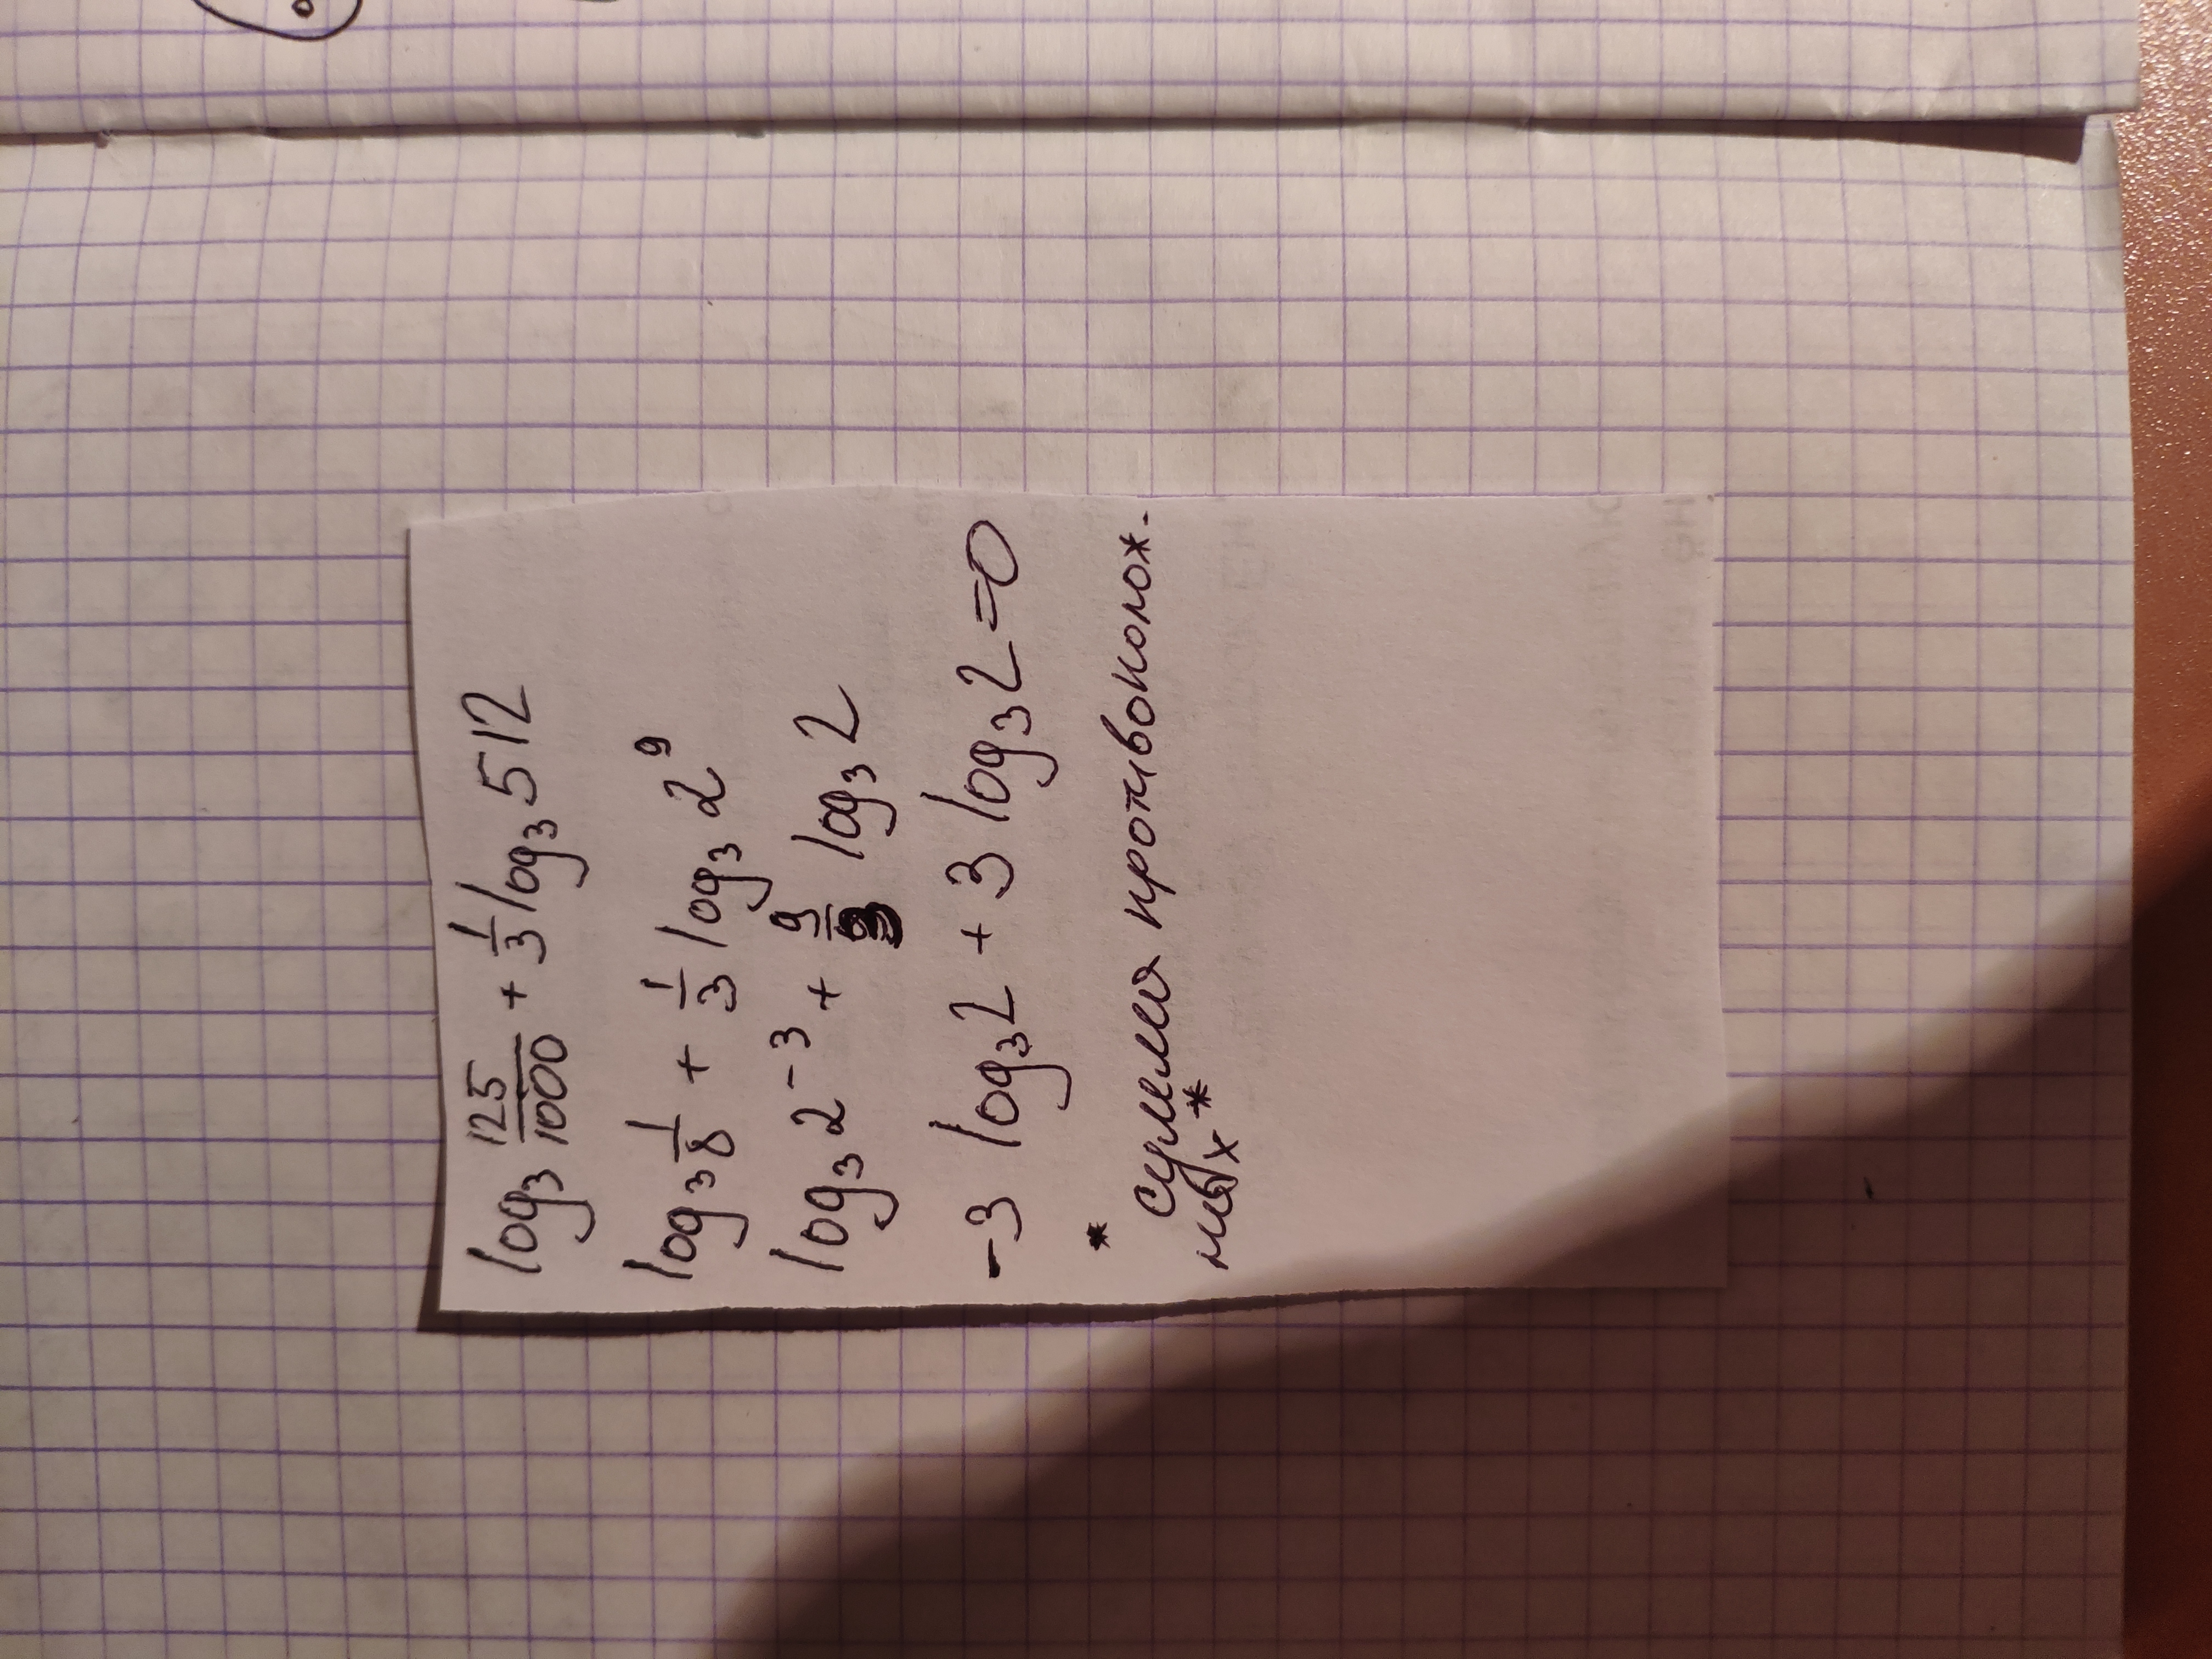 log₃ 125/1000 + 1/3 log₃ 512
log₃ 1/8 + 1/3 log₃ 2⁹
log₃ 2⁻³ + 9/3 log₃ 2
-3 log₃ 2 + 3 log₃ 2 = 0
* сумма противополож-
ных *